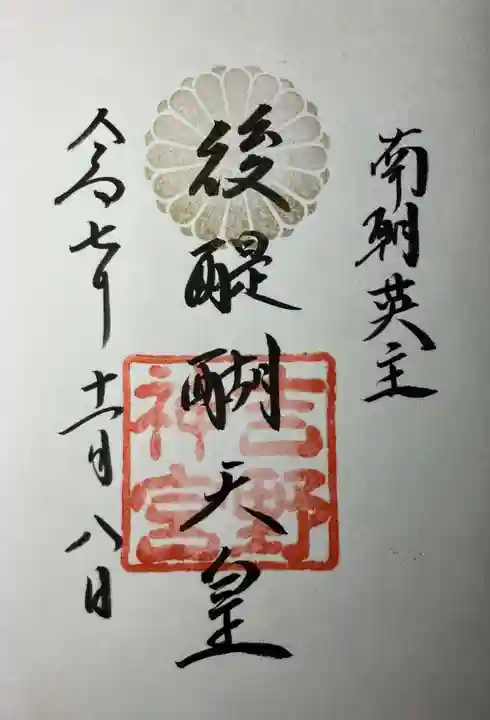 南朝英主
後醍醐天皇
吉野
神宮
令和七年
十一月八日